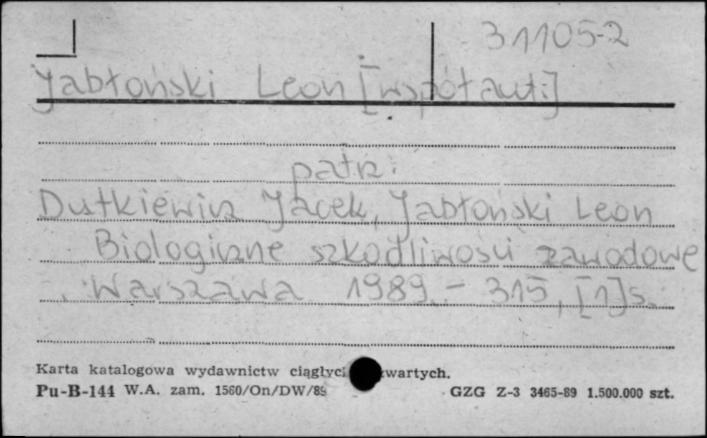 31105-2
Jabłoński Leon [współaut.]
patrz:
Dutkiewicz Jacek, Jabłoński Leon
Biologiczne szkodliwości zawodowe
. Warszawa 1989. - 315, [1] s.
Karta katalogowa wydawnictw ciągłyc wartych.
Pu-B-144 W.A. zam. 1560/On/DW/89 GZG Z-3 3465-89 1.500.000 szt.